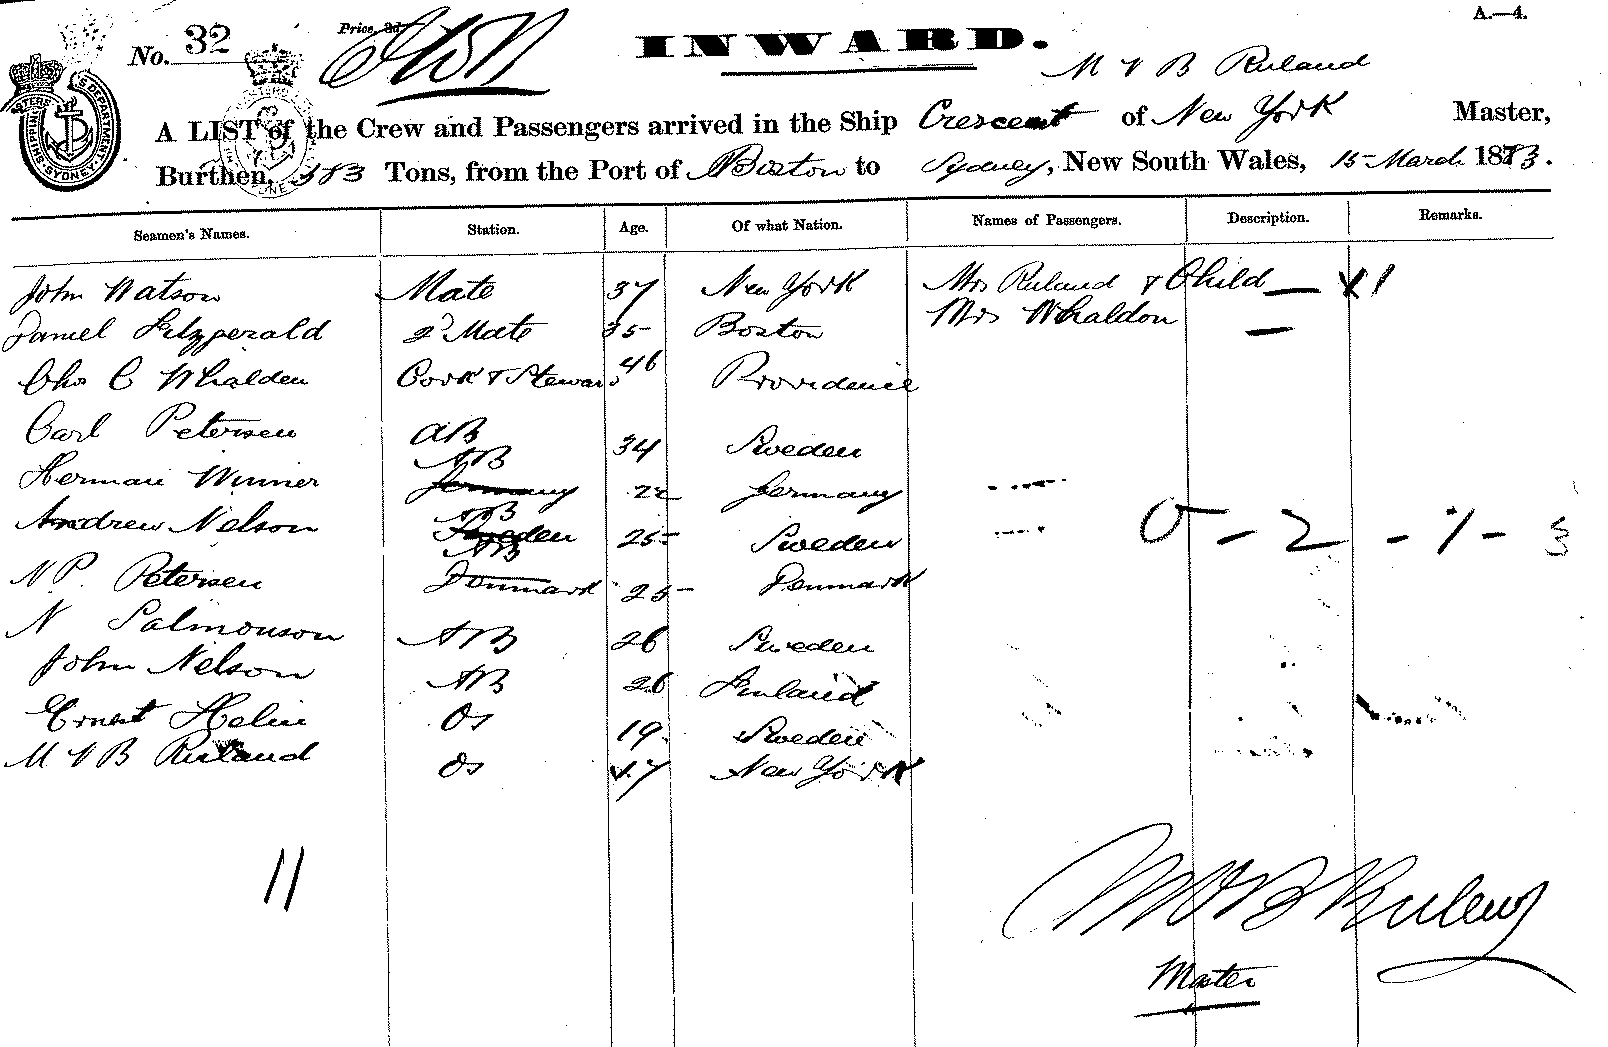 A.—4.
No. 32
Price, 3d
INWARD.
M V B Ruland
A LIST of the Crew and Passengers arrived in the Ship Crescent of New York Master,
Burthen, 583 Tons, from the Port of Boston to Sydney, New South Wales, 15 March 1873.
Seamen's Names. Station. Age. Of what Nation. Names of Passengers. Description. Remarks.
John Watson Mate 37 New York Mrs Ruland & Child —
Daniel Fitzgerald 2d Mate 35 Boston Mrs Whaldon —
Chs C Whalden Cook & Steward 46 Providence
Carl Petersen AB 34 Sweden
Herman Winner AB Germany 22 Germany
Andrew Nelson AB Sweden 25 Sweden
N P. Petersen AB Denmark 25 Denmark
N Salmonson AB 26 Sweden
John Nelson AB 26 Finland
Ernest Helin Os 19 Sweden
M V B Ruland Os 17 New York
0 - 2 - 1 - 3
11
M V B Ruland
Master
SHIPPING MASTER'S DEPARTMENT SYDNEY